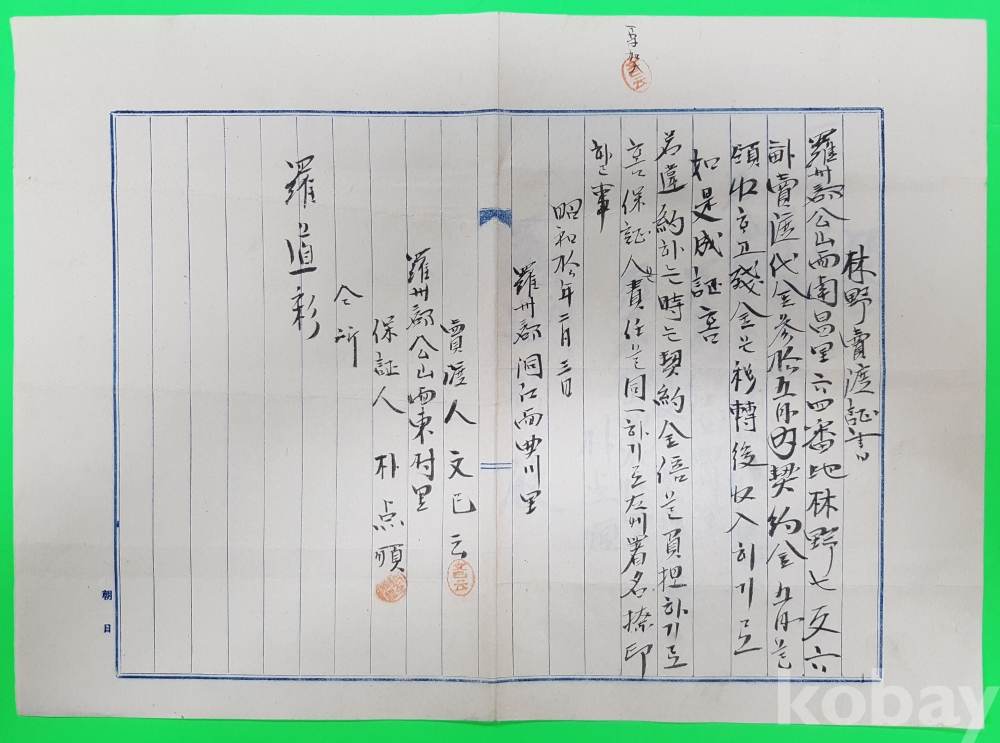 林野賣渡証書
羅州郡公山面南昌里六四番地林野七反六
畝賣渡代金参拾五円內契約金五円은
領收하고殘金은移轉後收入하기로
如是成証홈
若違約하는時는契約金倍을負担하기로
홈保証人責任은同一하기로左에署名捺印
할事
昭和拾年二月三日
羅州郡洞江面曲川里
賣渡人文已云
羅州郡公山面東村里
保証人朴点順
仝所
羅道彩
朝日
kobay